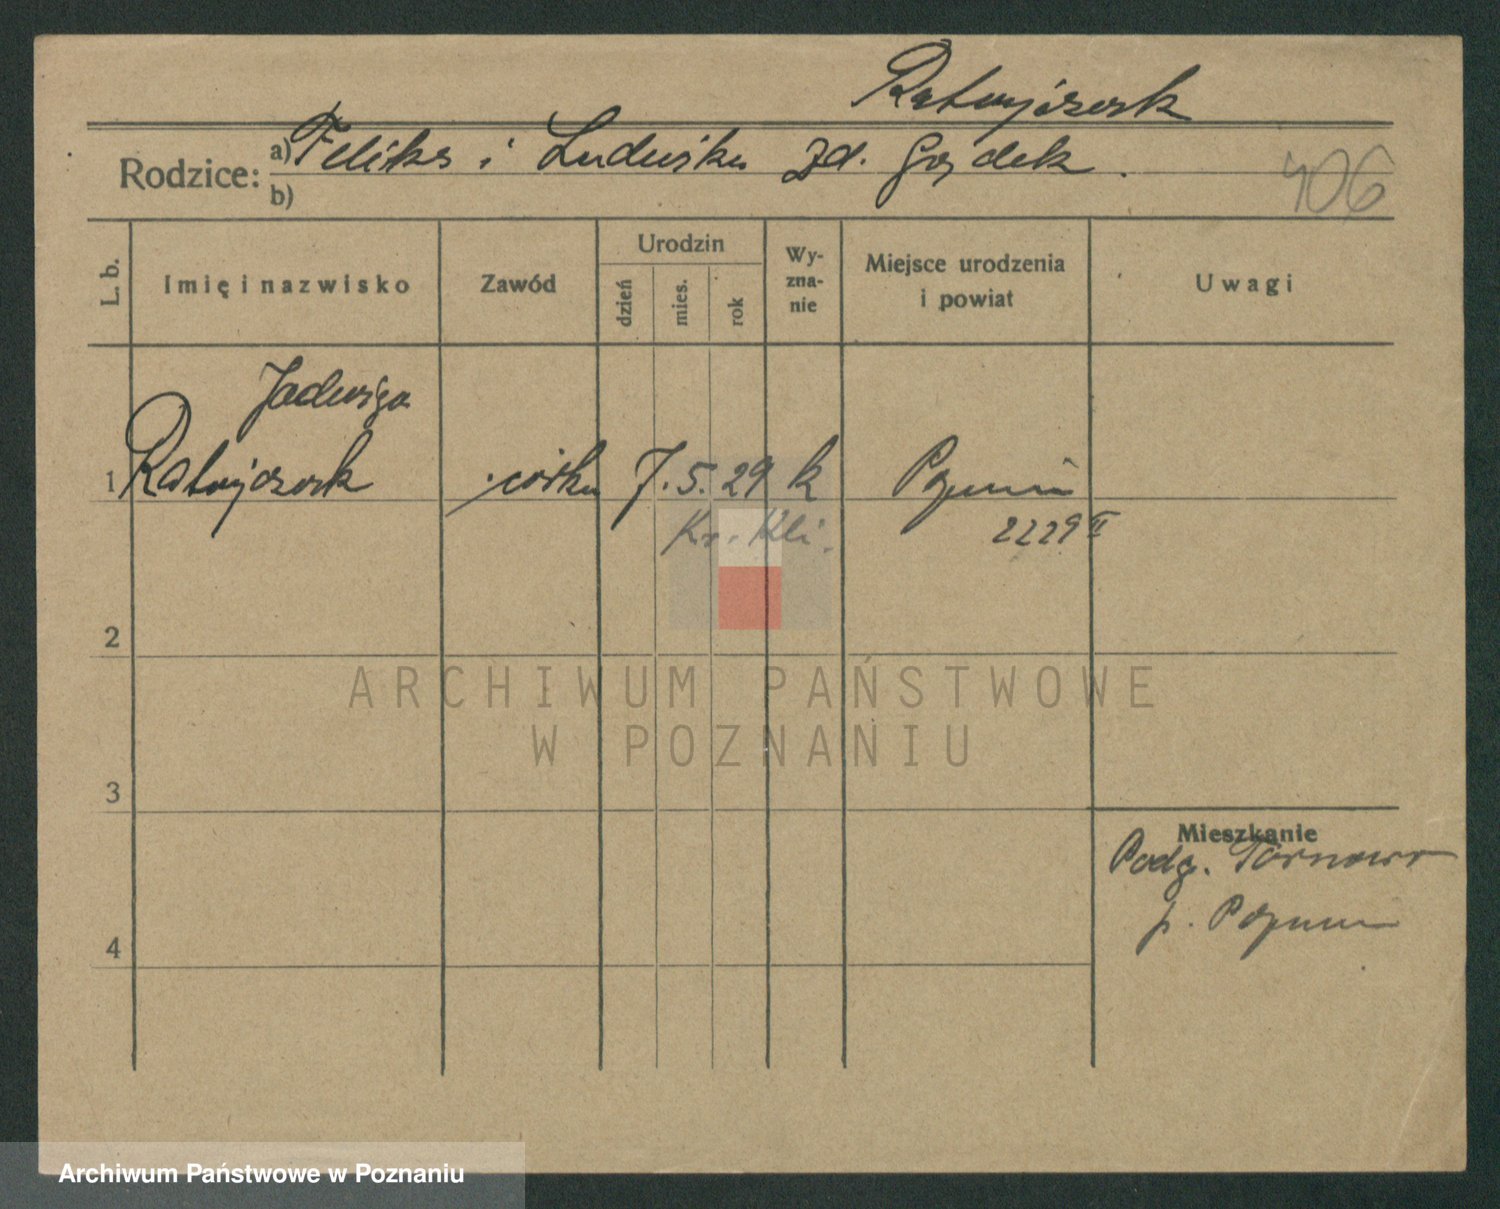 Ratajczak
Rodzice: a) Feliks i Ludwika zd. Gozdek.
b)
406
L. b.
Imię i nazwisko
Zawód
Urodzin
dzień
mies.
rok
Wy-
zna-
nie
Miejsce urodzenia
i powiat
Uwagi
Jadwiga
1 Ratajczak córka 7. 5. 29 k Poznań
Kr. Kli. 2229 II
2
3
4
Mieszkanie
Podg. Tarnowo
p. Poznań
ARCHIWUM PAŃSTWOWE
W POZNANIU
Archiwum Państwowe w Poznaniu